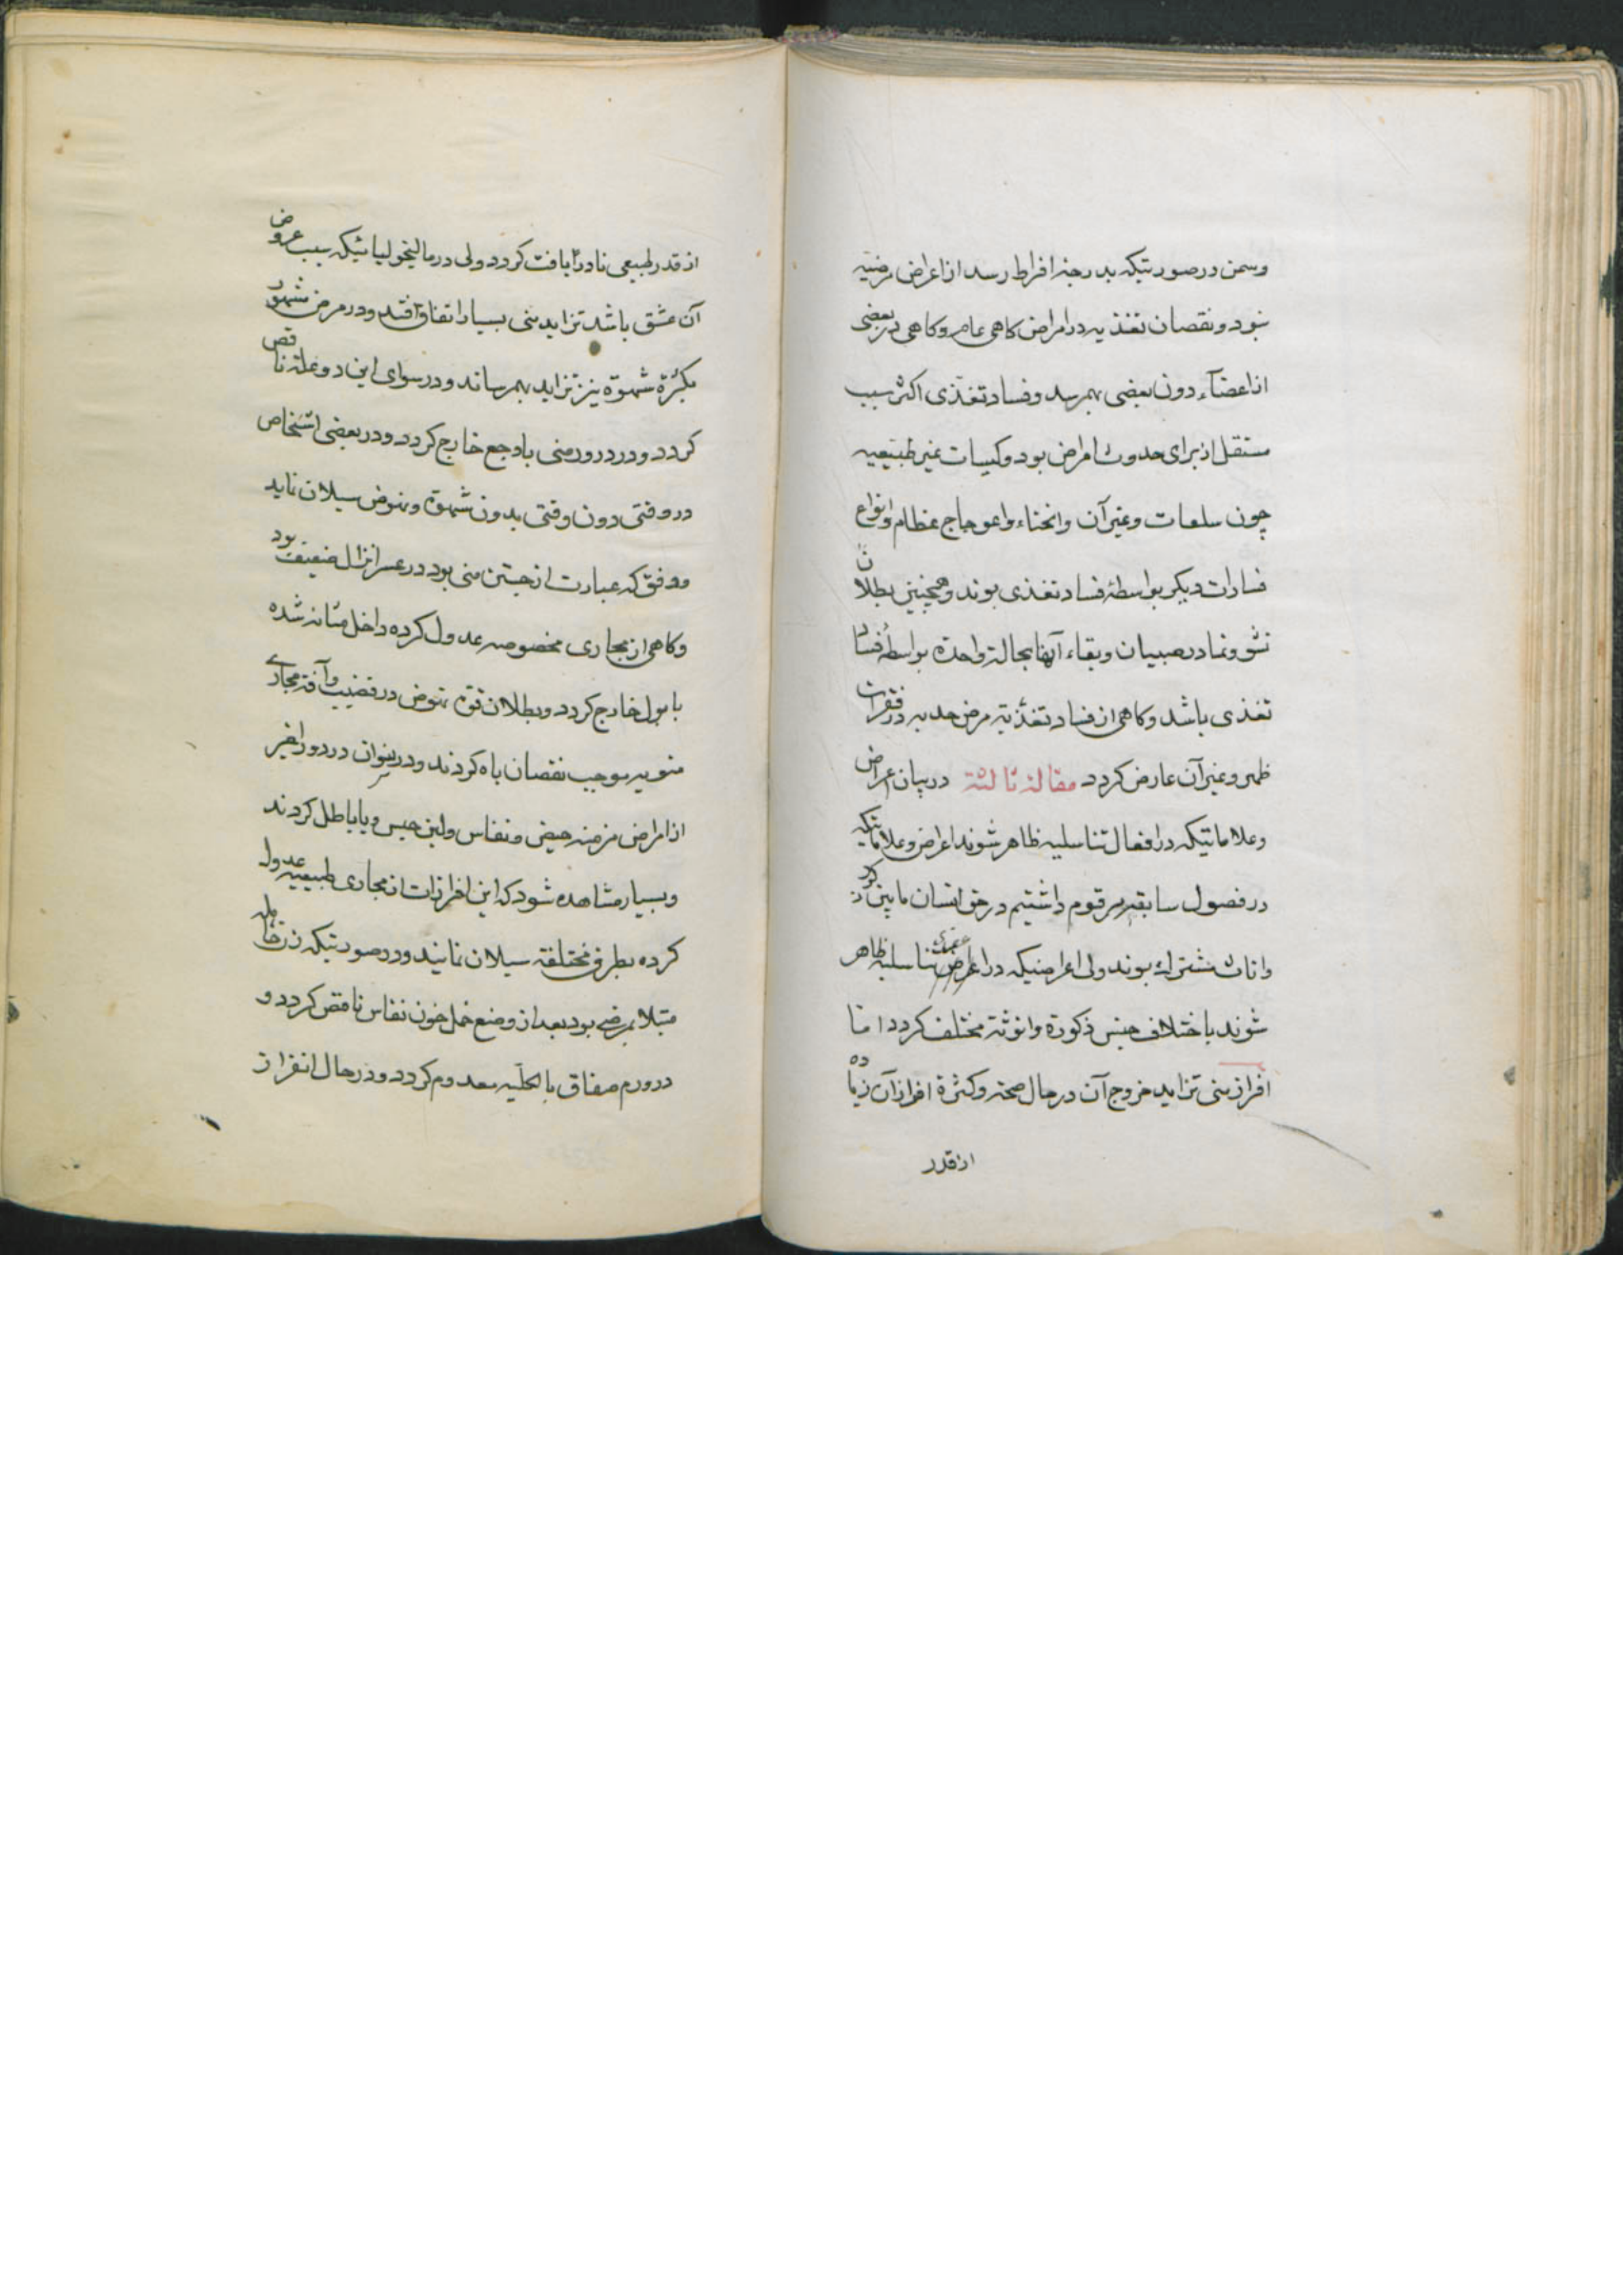 وسمن در صورتیکه بدرجه افراط رسد از اعراض مرضیه
بود و نقصان تغذیه در امراض کاهی عام و کاهی در بعضی
از اعضآء دون بعضی بهمرسد و فساد تغذی اکثر سبب
مستقل از برای حدوث امراض بود و کیسات غیر طبیعیه
چون سلعات و غیر آن و انحناء و اعوجاج عظام و انواع
فسادات دیکر بواسطهٔ فساد تغذی بوند و همچنین بطلان
نشو و نما در صبیان و بقاء آنها بحالة واحدة بواسطهٔ فساد
تغذی باشد و کاهی از فساد تغذیه مرض حدبه در فقرات
ظهر و غیر آن عارض کردد مقاله ثالثه در بیان اعراض
و علاماتیکه در افعال تناسلیه ظاهر شوند اعراض و علاماتیکه
در فصول سابقه مرقوم داشتیم در حق انسان مابین ذکور
و اناث مشترک بوند ولی اعراضیکه در تناسلیه ظاهر
شوند باختلاف جنس ذکورة و انوثة مختلف کردد اما
افراز منی تزاید خروج آن در حال صحة و کثرة افراز آن زیاده
از قدر
از قدر طبیعی نادرا یافت کردد ولی در مالیخولیائیکه سبب عروض
آن عشق باشد تزاید منی بسیار اتفاق افتد و در مرض مشهور
بکثرة شهوة نیز تزاید بهمرساند و در سوای این دو علة ناقص
کردد و در درور منی با وجع خارج کردد و در بعضی اشخاص
در وقتی دون وقتی بدون شهوة و نهوض سیلان نماید
و دفق که عبارت از جستن منی بود در عسر انزال ضعیف بود
و کاهی از مجاری مخصوصه عدول کرده داخل مثانه شده
با بول خارج کردد و بطلان قوة نهوض در قضیب و آفة مجاری
منویه موجب نقصان باه کردند و در نسوان در دور اخیر
از امراض مزمنه حیض و نفاس و لبن حبس و یا باطل کردند
و بسیار مشاهده شود که این افرازات از مجاری طبیعیه عدول
کرده بطرق مختلفه سیلان نمایند و در صورتیکه زن حامله
مبتلا بمرضی بود بعد از وضع حمل خون نفاس ناقص کردد و
در ورم صفاق بالکلیه معدوم کردد و در حال انفراز